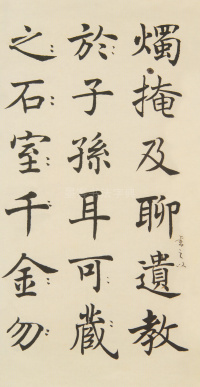 燭掩及聊遺教
於子孫耳可藏
之石室千金勿